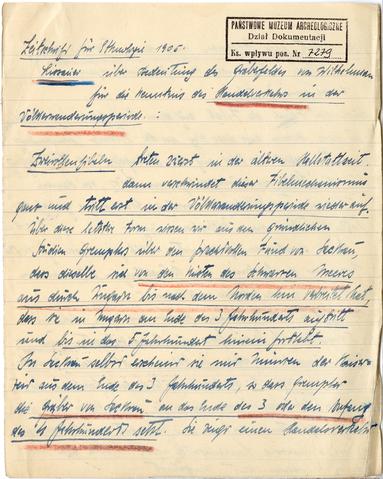 PAŃSTWOWE MUZEUM ARCHEOLOGICZNE
Dział Dokumentacji
Ks. wpływu poz. Nr 7279
Zeitschrift für Ethnologie 1905.
Lissauer über Bedeutung des Gräberfeldes von
für die Kenntnis des Handelsverkehrs in der
Völkerwanderungsperiode :
treten zuerst in der älteren Hallstattzeit,
dann verschwindet dieser Fibelmechanismus
ganz und tritt erst in der Völkerwanderungsperiode wieder auf.
Über diese letztere Form wissen wir aus den gründlichen
Studien Gremplers über den prachtvollen Fund von Sackrau,
dass dieselbe von den Küsten des Schwarzen Meeres
aus durch Ungarn bis nach dem Norden hin verbreitet hat,
dass sie in Ungarn am Ende des 3 Jahrhunderts auftritt
und bis in das 5 Jahrhundert hinein fortlebt.
In Sackrau selbst erscheint sie mit Münzen der Kaiser
aus dem Ende des 3 Jahrhunderts, so dass Grempler
die Gräber von Sackrau an das Ende des 3 oder den Anfang
des 4 Jahrhunderts setzt. Sie zeigt einen Handelsverkehr